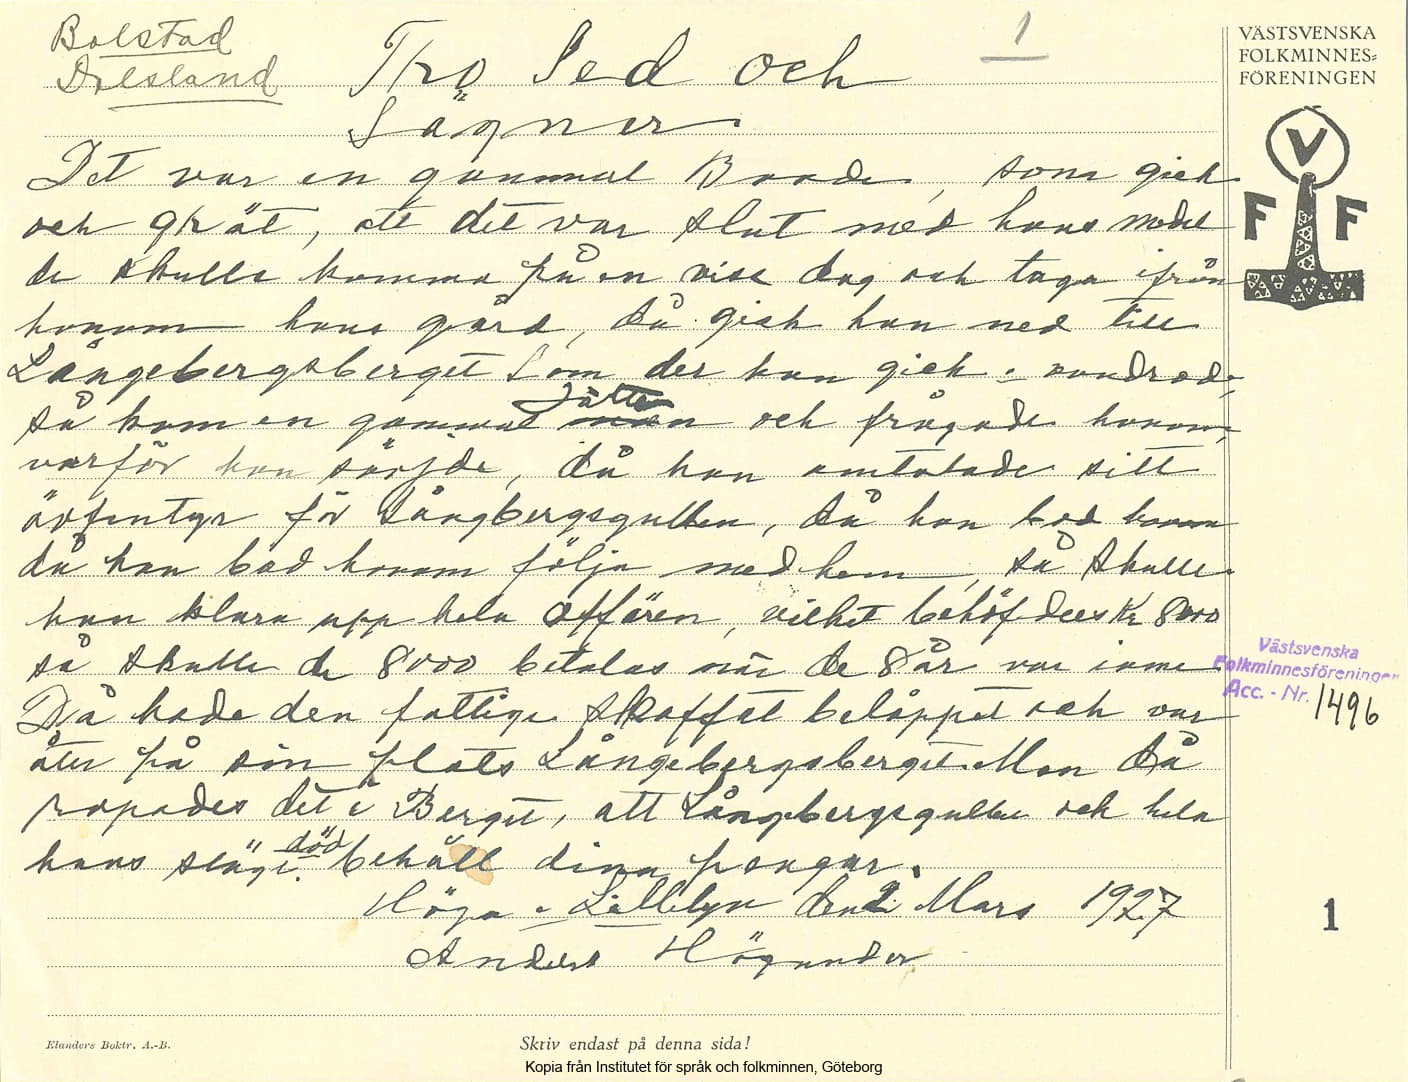 Bolstad
Dalsland
1
Tro Sed och
Sägner
Det var en gammal Bonde, som gick
och grät, att det var slut med hans medel
de skulle komma på en viss dag och taga ifrån
honom hans gård, då gick han ned till
Långebergsberget Som der han gick o vandrade,
så kom en gammal Jätte och frågade honom,
varför han sörjde, då han omtalade sitt
ävfentyr för Långbergsgubben, då han bad honom
då han bad honom följa med hem, så skulle
han klara upp hela affären, vilket behöfdees Kr 8000
så skulle de 8000 betalas när de 8 år var inne
Då hade den fattige skaffat beloppet och var
åter på sin plats Långebergsberget. Men då
ropades det i Berget, att Långbergsgubben och hela
hans slägt död behåll dina pengar.
Höga i Lillebyn den 2 Mars 1927
Anders Högander
VÄSTSVENSKA
FOLKMINNES=
FÖRENINGEN
V
F F
Västsvenska
Folkminnesföreningen
Acc. - Nr. 1496
1
Elanders Boktr. A.-B.
Skriv endast på denna sida!
Kopia från Institutet för språk och folkminnen, Göteborg